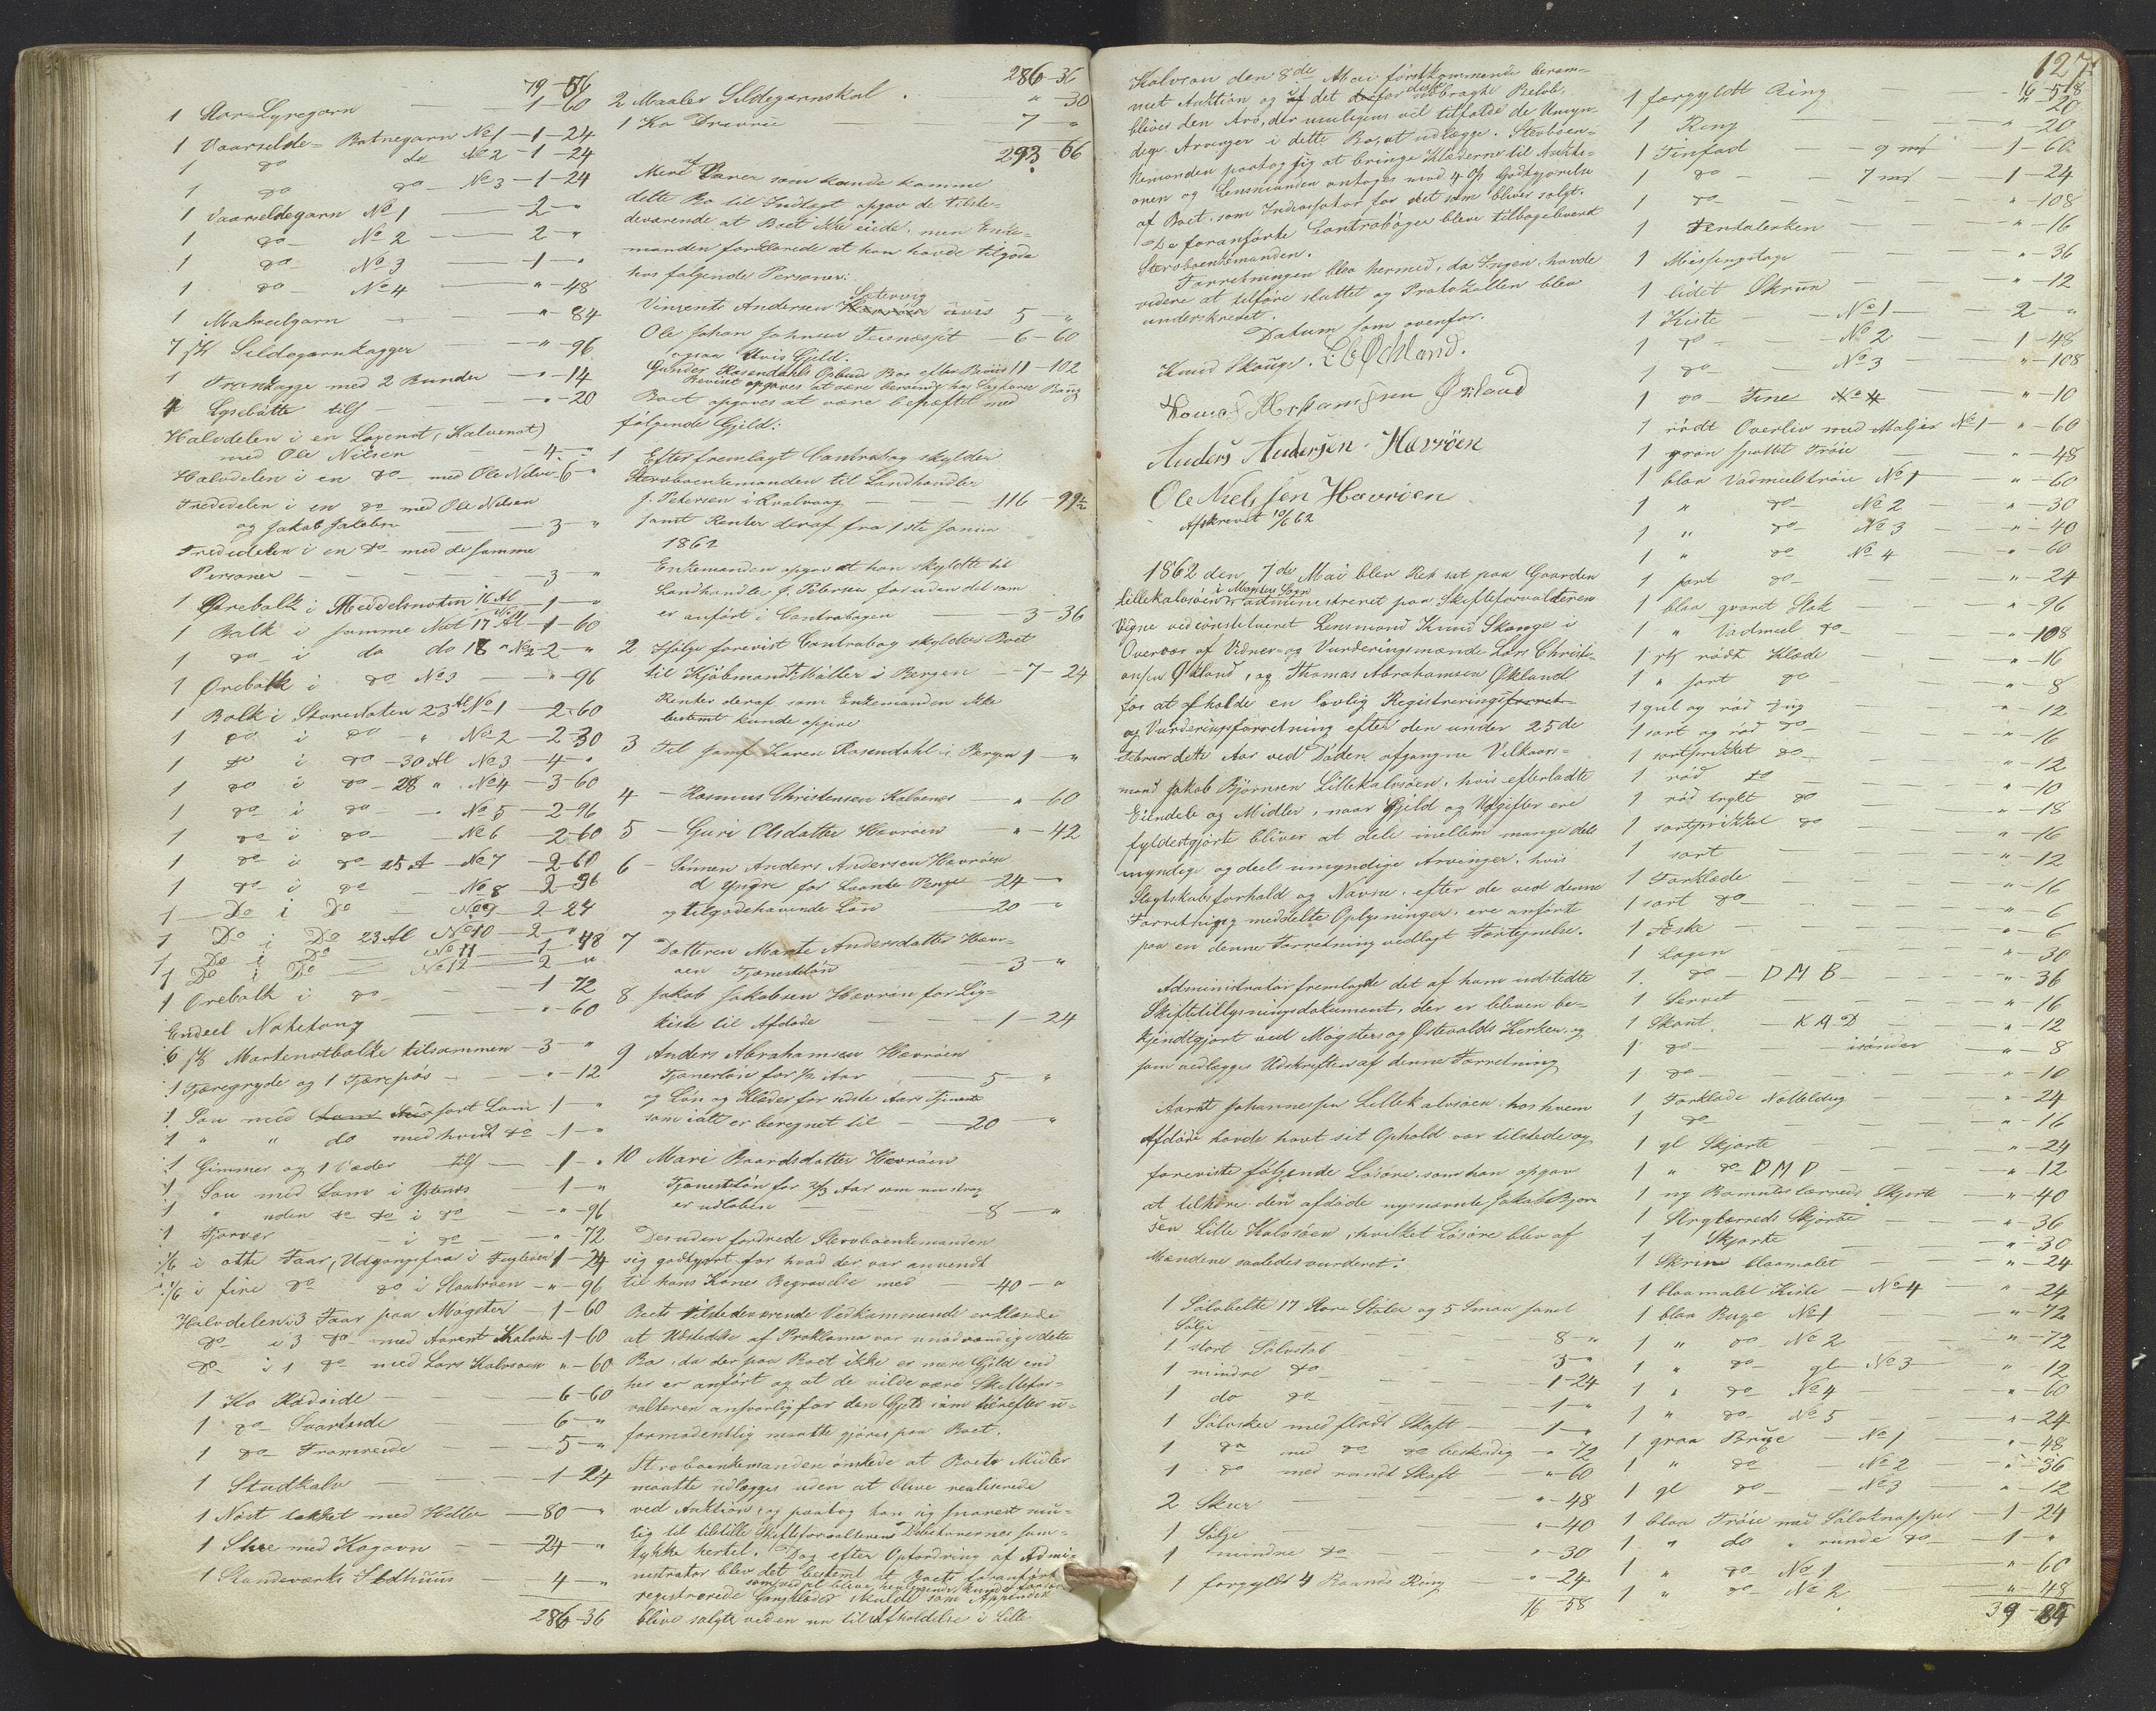 79-56
1 Stor-Lyregarn — 1-60
1 Vaarsilde-Botnegarn No 1 — 1-24
1 do do No 2 — 1-24
1 do do No 3 — 1-24
1 Vaarsildegarn No 1 — 2 - "
1 do No 2 — 2 - "
1 do No 3 — 1 - "
1 do No 4 — " - 48
1 Makreelgarn — " - 84
7 stk Sildegarnkagger — " - 96
1 Trankagge med 2 Bunder — " - 14
4 Lysebøtte tils — " - 20
Halvdelen i en Laxenot, (Kalvenot)
med Ole Nilsen — 4 - "
Halvdelen i en do med Ole Nilsen 6 - "
Trediedelen i en do med Ole Nilsen
og Jakob Jakobsen — 3 - "
Trediedelen i en do med de samme
Personer — 3 - "
1 Ørebolk i Meddelsnoten 16 Al — 1 - "
1 Bolk i samme Noot 17 Al No 1 — 1-60
1 do i do do 18 " No 2 — 2 - "
1 Ørebolk i do No 3 — " - 96
1 Bolk i Storenoten 23 Al No 1 — 2-60
1 do i do - " No 2 — 2-30
1 do i do - 30 Al No 3 — 4 - "
1 do i do - 28 " No 4 — 3-60
1 do i do — " No 5 — 2-96
1 do i do — No 6 — 2-60
1 do i do 25 A — No 7 — 2-60
1 do i do — No 8 — 2-96
1 Do i Do — No 9 — 2-24
1 Do i Do 23 Al No 10 — 2 - "
1 Do i Do — No 11 — 1-48
1 Do i Do — No 12 — 2 - "
1 Ørebolk i do — 1-72
Endeel Notetoug — " - 60
6 stk Mortenotbolke tilsammen — 3 - "
1 Tjæregryde og 1 Tjærepøs — " - 12
1 Sou med sort Lam 1 - "
1 " " do med hvidt do — 1 - "
1 Gimmer og 1 Væder tils — 1 - "
1 Sou med Lam i Ystenes — 1 - "
1 " uden do i do — " - 96
1 Tjorver — i do — " - 72
1/6 i otte Faar, Udgangsfaar i 1 - 24
1/6 i fire do do i — " - 96
Halvdelen i 3 Faar paa Møgster — 1-60
do i 3 do med Aarent Kalvsøen — 1-60
do i 1 do med Lars Kalvsøen " - 60
1 Ko Rødside — 6-60
1 do Svartside — 6 - "
1 do Framreide — 5 - "
1 Studkalv — 1-24
1 Nøst takket med Heller — 80 - "
1 Stue med Kogovn — 24 - "
1 Standeværks Ildhuus — 4 - "
286-36
286-36
2 Maaler Sildegarnskal . " - 30
1 Ko — 7 - "
293-66
Mere af Varer som kunde komme
dette Bo til Indtægt opgav de tilste-
deværende at Boet ikke eiede, men Enke-
manden forklarede at han havde tilgode
hos følgende Personer:
Vinsents Andersen Sætervig uvis 5 - "
Ole Johan Johnsen — 6-60
ogsaa Uvis Gjeld.
Gunder Rosendahls Opbud Boe efter Beviis 11 - 102
Beviset opgaves at være beroende hos Sagfører
Boet opgaves at være behæftet med
følgende Gjeld:
1 Efter fremlagt Contrabog skylder
Stervboenkemanden til Landhandler
J. Petersen i Kvalvaag — 116 - 99½
samt Renter deraf fra 1ste Januar
1862
Enkemanden opgav at han skyldte til
Landhandler J. Petersen foruden det som
er anført i Contrabogen — 3-36
2 Ifølge forevist Contrabog skylder Boet
til Kjøbmand Møller i Bergen — 7-24
Renter deraf som Enkemanden ikke
bestemt kunde opgive
3 Til Jomf Karen Rosendahl i Bergen 1 - "
4 — Rasmus Christensen Kalvenes — " - 60
5 — Guri Olsdatter Hævrøen — " - 42
6 — Sønnen Anders Andersen Hævrøen
d Yngre for Laante Penge — 24 - "
og tilgodehavende Løn — 20 - "
7 Datteren Marte Andersdatter Hævr-
øen Tjenesteløn — 3 - "
8 Jakob Jakobsen Hævrøen for Lig-
kiste til Afdøde — 1-24
9 Anders Abrahamsen Hævrøen
Tjenerløn for ½ Aar — 5 - "
og Løn og Klæder for sidste Aars Tjeneste
som ialt er beregnet til — 20 - "
10 Mari Baardsdatter Hævrøen
Tjenesteløn for 2/3 Aar som nu strax
er udløben — 8 - "
Desuden fordrede Stervboenkemanden
sig godtgjort for hvad der var anvendt
til hans Kones Begravelse med — 40 - "
Boets tilstedeværende Vedkommende erklærede
at Udstedelse af Proklama var unødvendig i dette
Bo, da der paa Boet ikke er mere Gjeld end
her er anført og at de vilde være Skiftefor-
valteren ansvarlig for den Gjeld som herefter u-
formodentlig maatte gjøres paa Boet.
Stervboenkemanden ønskede at Boets Midler
maatte udlægges uden at blive realiserede
ved Auktion, og paatog han sig snarest mu-
lig at tilstille Skifteforvalteren Debitorernes Sam-
tykke hertil. Dog efter Opfordring af Admi-
nistrator blev det bestemt at Boets foranførte
registrerede Gangklæder skulde som Appendix
blive solgte ved en nu til Afholdelse i Lille
Kalvsøen den 8de Mai førstkommende beram-
met Auktion og det derfor udbragte Beløb,
bliver den Arv, der muligens vil tilfalde de Umyn-
dige Arvinger i dette Bo, at udlægge. Stervboen-
kemanden paatog sig at bringe Klæderne til Aukti-
onen og Lensmanden antoges mod 4 % Godtgjørelse
af Boet som Incassator for det som bliver solgt.
De foranførte Contrabøger bleve tilbageleveret
Stervboenkemanden.
Forretningen blev hermed, da Ingen havde
videre at tilføre sluttet og Protokollen blev
underskrevet.
Datum som ovenfor.
Knud Skouge. L C Økland.
Thomas Abrahamsen Økland
Anders Andersen Hævrøen
Ole Nielssen Hævrøen
Afskrevet 10/6 62
1862 den 7de Mai blev Ret sat paa Gaarden
Lillekalvsøen i Møgster Sogn administreret paa Skifteforvalterens
Vegne ved constitueret Lensmand Knud Skouge i
Overvær af Vidner- og Vurderingsmænde Lars Christi-
ansen Økland, og Thomas Abrahamsen Økland
for at afholde en lovlig Registrerings
og Vurderingsforretning efter den under 25de
Februar dette Aar ved Døden afgangne Vilkaars-
mand Jakob Bjørnsen Lillekalvsøen, hvis efterladte
Eiendele og Midler, naar Gjeld og Udgifter ere
fyldestgjorte bliver at dele imellem mange dels
myndige og deels umyndige Arvinger, hvis
Slegtskabsforhold og Navne, efter de ved denne
Forretning meddelte Oplysninger, ere anførte
paa en denne Forretning vedlagt Fortegnelse.
Administrator fremlagde det af ham udstedte
Skiftetillysningsdokument, der er bleven be-
kjendtgjort ved Møgster og Østevolds Kirker, og
som vedlægges Udskriften af denne Forretning
Aarent Johannessen Lillekalvsøen hos hvem
Afdøde havde havt sit Ophold var tilstede og
foreviste følgende Løsøre, som han opgav
at tilhøre den afdøde nysnævnte Jakob Bjørn
sen Lille Kalvsøen, hvilket Løsøre blev af
Mændene saaledes vurderet:
1 Sølvbelte 17 store Støler og 5 Smaa samt
Sølje — 8 - "
1 stort Sølvstob — 3 - "
1 mindre do — 1-24
1 do do — 1 - "
1 Sølvskee med fladt Skaft — 1 - "
1 do med do do beskadig — " - 72
1 do med rundt Skaft — " - 60
2 Skeer — " - 48
1 Sølje — " - 40
1 mindre do — " - 30
1 forgyldt 4 Baands Ring — " - 24
16-58
127.
16-58
1 forgyldt Ring — " - 20
1 Ring — " - 20
1 Tinfad — 9 mk — 1-60
1 do — 7 mk — 1-24
1 do — " - 108
1 Tentalerken — " - 16
1 Messingstage — " - 36
1 lidet Skruu — " - 12
1 Kiste — No 1 — 2 - "
1 do — No 2 — 1-48
1 do — No 3 — " - 108
1 do Tine — " - 10
1 rødt Overliv med Maljer No 1 — " - 60
1 grøn spottet Trøie — " - 48
1 blaa Vadmeelstrøie No 1 — " - 60
1 " do No 2 — " - 30
1 " do No 3 — " - 40
1 " do No 4 — " - 60
1 sort do — " - 24
1 blaa qvoret Stak — " - 96
1 " Vadmeel do — " - 108
1 stk rødt Klæde — " - 16
1 " sort do — " - 8
1 gul og rød — " - 12
1 sort og rød do — " - 16
1 sortprikket do — " - 12
1 rød do — " - 10
1 rød trykt do — " - 18
1 sortprikket do — " - 16
1 sort — " - 12
1 Forklæde — " - 16
1 sort do — " - 6
1 Æske — " - 6
1 Lagen — " - 30
1 do — D M B — " - 36
1 Serviet — " - 16
1 Skaut — K A D — " - 12
1 do — isønder — " - 8
1 do — " - 10
1 Forklæde Netteldug — " - 24
1 do — " - 16
1 gl Skjorte — " - 24
1 " do D M D — " - 12
1 ny Bomuldslærreds Skjorte — " - 40
1 Strylærreds Skjorte — " - 36
1 Skjorte — " - 30
1 Skrin blaamalet — " - 24
1 blaamalet Kiste — No 4 " - 24
1 blaa Buxe No 1 — " - 72
1 " do No 2 — " - 72
1 " do gl No 3 — " - 12
1 " do No 4 — " - 60
1 " do No 5 — " - 24
1 graa Buxe — No 1 — " - 48
1 " do — No 2 — " - 36
1 gl do — No 3 — " - 12
1 blaa Trøie med Sølvknapper — 1-24
1 " do " runde do — 1 - "
1 " do No 1 — " - 60
1 " do No 2 — " - 48
39-84